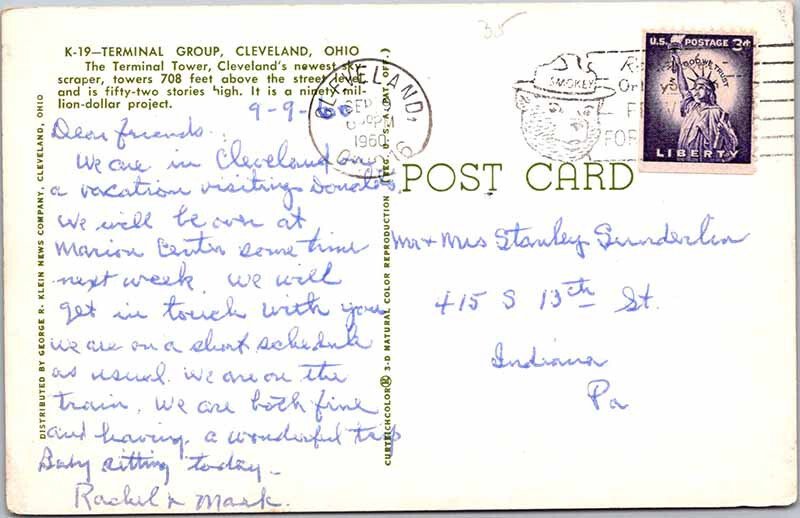 35
K-19—TERMINAL GROUP, CLEVELAND, OHIO
The Terminal Tower, Cleveland's newest sky
scraper, towers 708 feet above the street level
and is fifty-two stories high. It is a ninety mil-
lion-dollar project.
9-9-60
Dear friends.
We are in Cleveland on
a vacation visiting Donalds.
We will be over at
Marion Center some time
next week. We will
get in touch with you
we are on a short schedule
as usual. We are on the
train. We are both fine
and having a wonderful trip
Baby sitting today—
Rachel & Mark.
DISTRIBUTED BY GEORGE R. KLEIN NEWS COMPANY, CLEVELAND, OHIO
CURTEICHCOLOR 3-D NATURAL COLOR REPRODUCTION (REG. U.S.A. PAT. OFF.)
CLEVELAND
SEP
PM
1960
OHIO
SMOKEY
FOR
U.S. POSTAGE 3¢
IN GOD WE TRUST
LIBERTY
POST CARD
Mr & Mrs Stanley Gunderlin
415 S 13th St.
Indiana
Pa